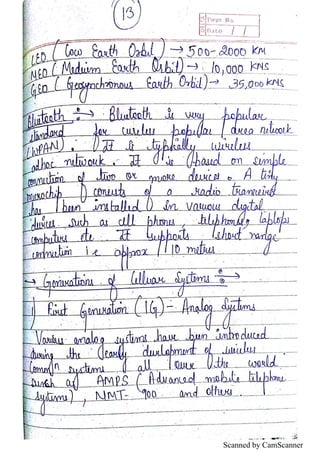 13
Page No.
Date / /
LEO ( Low Earth Orbit ) → 500-2000 KM
MEO ( Medium Earth Orbit) → 10,000 KMS
GEO ( Geosynchronous Earth Orbit) → 35,000 KMS
Bluetooth :→ Bluetooth is very popular
standard for wireless popular area network
(WPAN). It is typically wireless
adhoc network. It is based on simple
connection of two or more devices. A tiny
microchip consists of a radio transceiver
has been installed in various digital
devices such as cell phones telephones, laptops
computers etc. It supports short range
connection i.e approx 10 metres
→ Generations of Cellular Systems :→
1) First Generation (1G) - Analog Systems
Various analog systems have been introduced
during the early development of wireless
Common systems all over the world
such as AMPS ( Advanced mobile telephone
systems), NMT- 900 and others.
Scanned by CamScanner